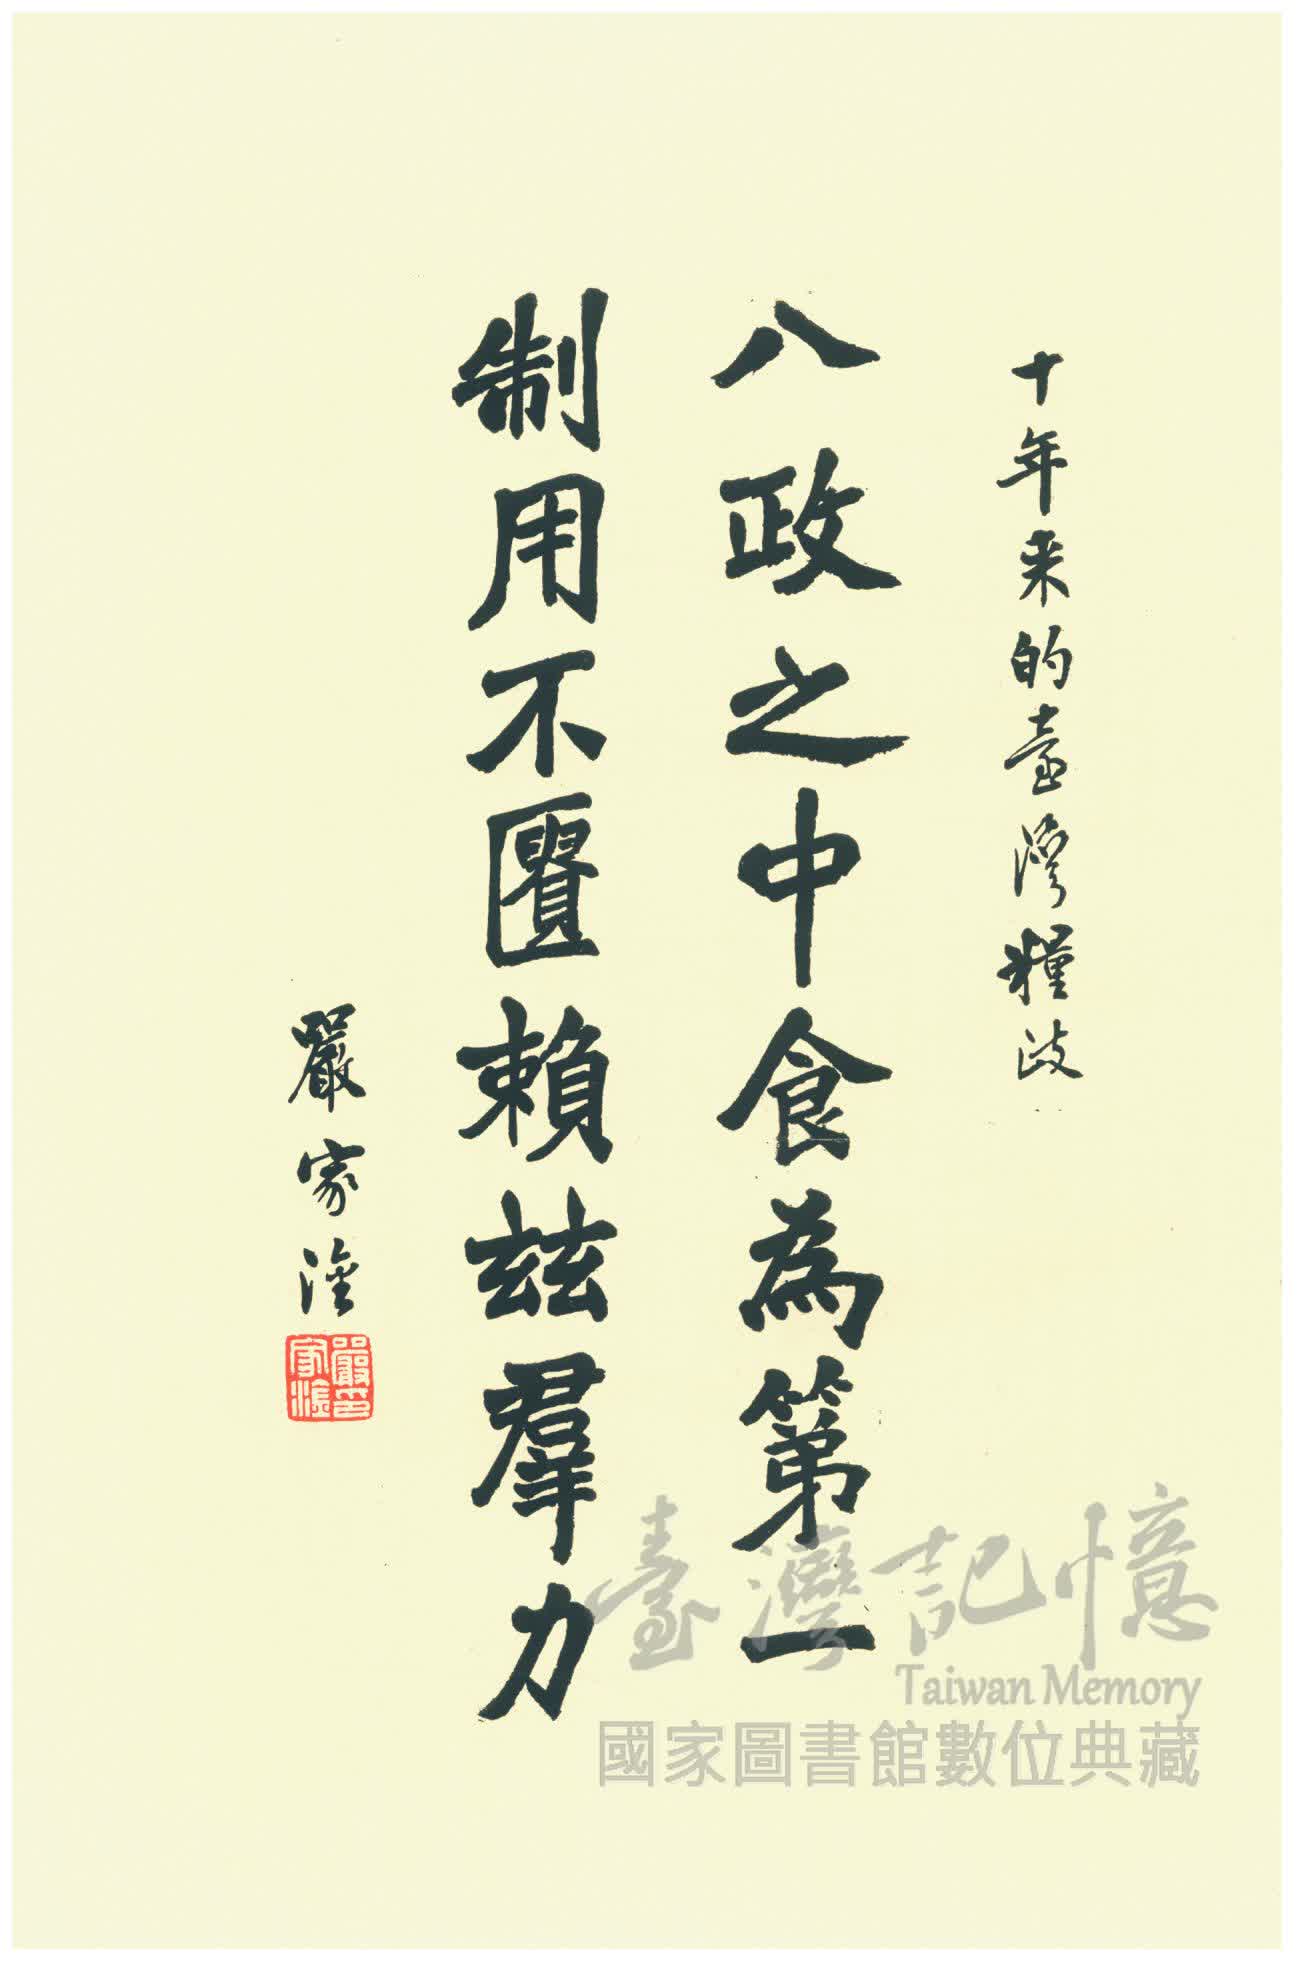 十年来的臺灣糧政
八政之中食為第一
制用不匱賴兹羣力
嚴家淦
嚴家淦印
臺灣記憶
Taiwan Memory
國家圖書館數位典藏